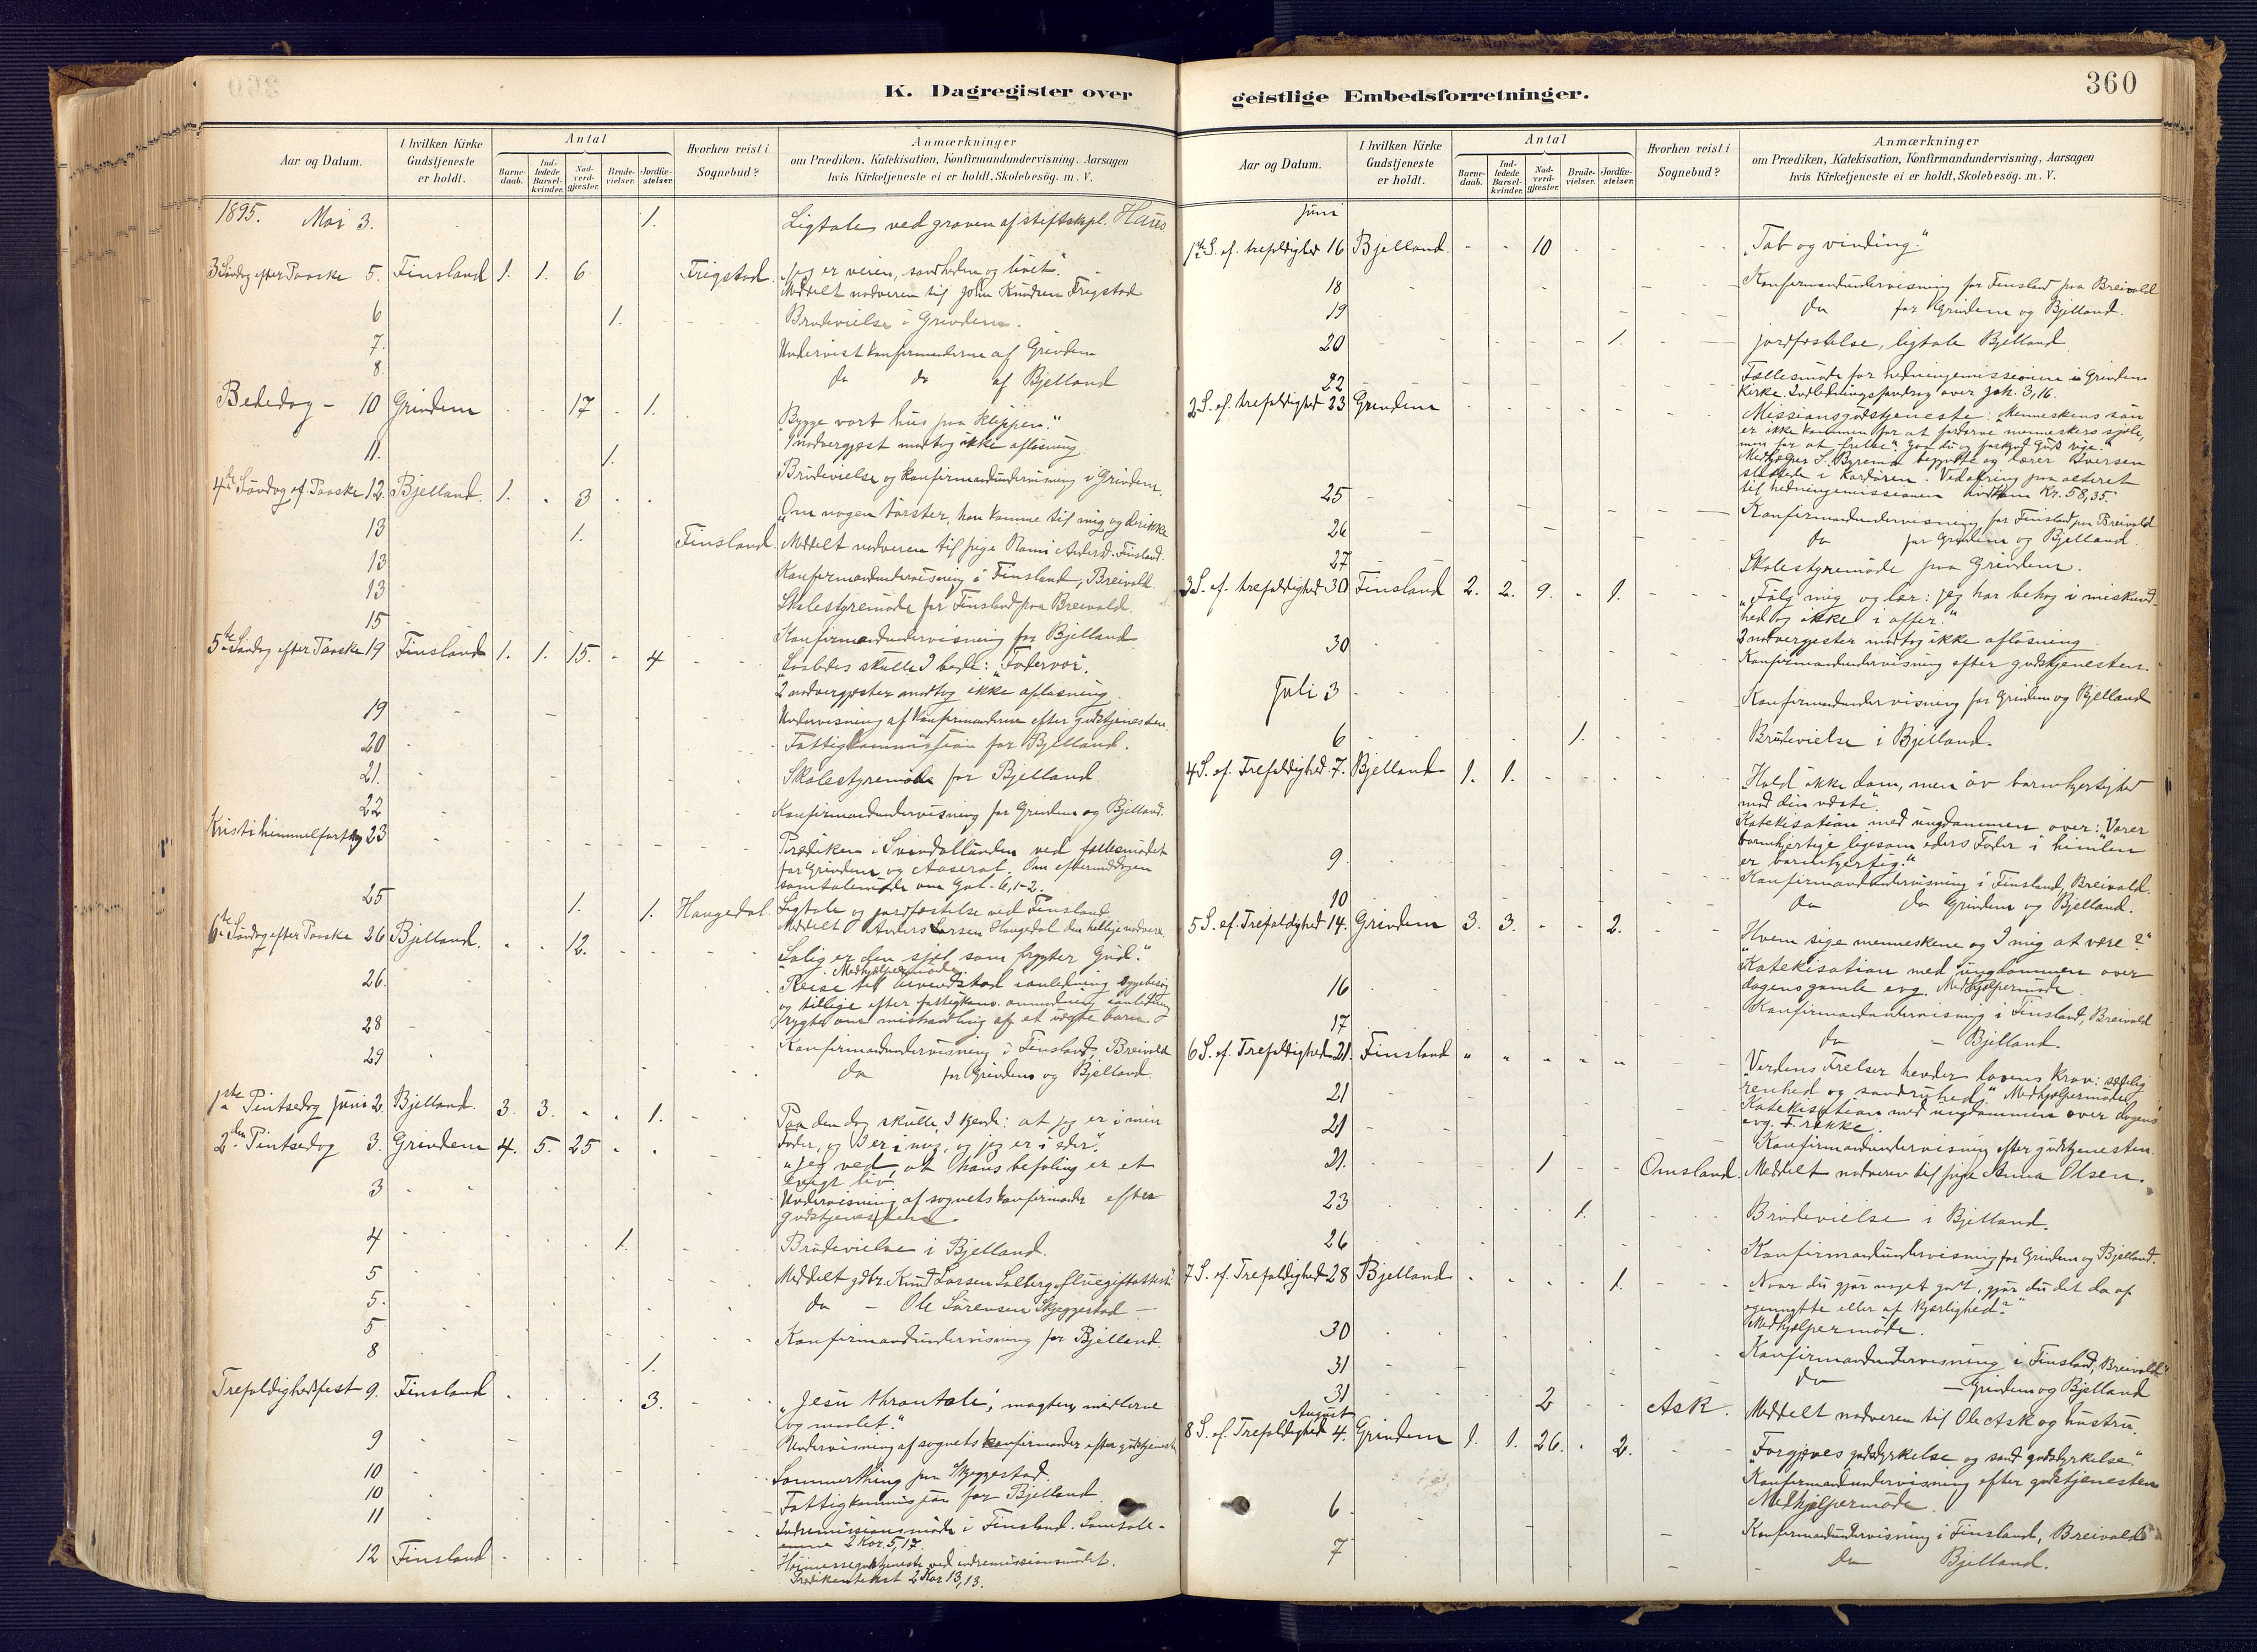 K. Dagregister over
Aar og Datum.
I hvilken Kirke Gudstjeneste er holdt.
Antal
Barnedaab.
Indledede Barselkvinder.
Nadverdgjester.
Brudevielser.
Jordfæstelser.
Hvorhen reist i Sognebud?
Anmærkninger
om Prædiken, Katekisation, Konfirmandundervisning, Aarsagen
hvis Kirketjeneste ei er holdt, Skolebesøg. m. V.
1895. Mai 3. 1. Ligtale ved graven af stiftskapl. Haus
3 Søndag efter Paaske 5. Finsland 1. 1. 6 Frigstad. "Jeg er veien, sandheden og livet".
Meddelt nadveren til John Knudsen Frigstad
6 1. Brudevielse i Grindem.
7. Undervist konfirmanderne af Grindem
8. do do af Bjelland
Bededag - 10 Grindem 17 1. "Bygge vort hus paa klippen."
1 nadvergjest modtog ikke afløsning.
11. 1. Brudevielse og konfirmandundervisning i Grindem.
4de Søndag ef. Paaske 12. Bjelland. 1. 3 "Om nogen tørster, han komme til mig og drikke
13 1. Finsland. Meddelt nadveren til pige Anders. Finsland.
13 Konfirmandundervisning i Finsland, Breivold.
13 Skolestyremøde for Finsland paa Breivold.
15 Konfirmandundervisning for Bjelland
5te Søndag efter Paaske 19 Finsland 1. 1. 15. 4 "Saaledes skulle I bede: "Fadervor".
2 nadvergjester modtog ikke afløsning.
19 Undervisning af konfirmanderne efter gudstjenesten.
20 Fattigkommission for Bjelland.
21. Skolestyremøde for Bjelland
22 Konfirmandundervisning for Grindem og Bjelland.
Kristi himmelfartsdag 23 Prædiken i ved fællesmødet
for Grindem og Aaseral. Om eftermiddagen
samtalemøde om Gal. 6,1-2.
25 1. 1. Haugedal. Ligtale og jordfæstelse ved Finsland.
Meddelt Anders Larsen Haugedal den hellige nadvere.
6te Søndag efter Paaske 26 Bjelland. 12. "Salig er den sjæl som frygter Gud."
Medhjælpermøde
26. Reise til i anledning
og tillige efter fattigkom. anmodning i anledning
rygte om mishandling af et uægte barn
28 Konfirmandundervisning i Finsland, Breivold
29 do for Grindem og Bjelland.
1ste Pintsedag Juni 2. Bjelland. 3. 3. 1. Paa den dag skulle I kjende: at jeg er i min
Fader, og I er i mig, og jeg er i eder".
2den Pintsedag 3. Grindem 4. 5. 25 "Jeg ved, at hans befaling er et
evigt liv
3 Undervisning af sognets konfirmander efter
gudstjenesten.
4 1. Brudevielse i Bjelland.
5 Meddelt gdbr. Knud Larsen Solberg
5. do - Ole Sørensen Skjeggestad -
5 Konfirmandundervisning for Bjelland.
8 1.
Trefoldighedsfest 9. Finsland 3. "Jesu throntale; magten, midlerne
og maalet."
9 Undervisning af sognets konfirmander efter gudstjenesten
10 Sommerthing paa Skjeggestad.
10 Fattigkommission for Bjelland
11 Indremissionsmøde i Finsland. Samtale-
emne 2 Kor. 5,17.
12 Finsland Høimessegudstjeneste ved indremissionsmødet.
Prædikentekst 2 Kor 13,13.
geistlige Embedsforretninger.
360
Aar og Datum.
I hvilken Kirke Gudstjeneste er holdt.
Antal
Barnedaab.
Indledede Barselkvinder.
Nadverdgjester.
Brudevielser.
Jordfæstelser.
Hvorhen reist i Sognebud?
Anmærkninger
om Prædiken, Katekisation, Konfirmandundervisning, Aarsagen
hvis Kirketjeneste ei er holdt, Skolebesøg. m. V.
Juni
1ste S. ef. trefoldighed 16 Bjelland 10 "Tab og vinding."
18 Konfirmandundervisning for Finsland paa Breivold
19 do for Grindem og Bjelland.
20 1. jordfæstelse, ligtale Bjelland
22 Fællesmøde for hedningemissionen i Grindem
kirke. Indledningsforedrag over Joh. 3,16.
2 S. ef. trefoldighed 23 Grindem Missionsgudstjeneste: "Menneskens søn
er ikke kommen for at fordærve menneskers sjæle,
men for at frelse". Gaa du og forkynd Guds rige."
Medhjælper S. Byremo begyndte og lærer Iversen
sluttede i kordøren. Ved ofring paa alteret
til hedningemissionen indkom Kr. 58,35.
25 Konfirmandundervisning for Finsland paa Breivold
26 do for Grindem og Bjelland.
27 Skolestyremøde paa Grindem.
3 S. ef. trefoldighed 30 Finsland 2. 2. 9. 1. "Følg mig og lær: jeg har behag i miskund-
hed og ikke i offer."
2 nadvergjester modtog ikke afløsning
30 Konfirmandundervisning efter gudstjenesten.
Juli 3 Konfirmandundervisning for Grindem og Bjelland
6 1. Brudevielse i Bjelland.
4 S. ef. Trefoldighed 7. Bjelland 1. 1. "Hold ikke dom, men øv barmhjertighed
mod din næste".
Katekisation med ungdommen over: "Værer
barmhjertige ligesom eders Fader i himlen
er barmhjertig."
9 Konfirmandundervisning i Finsland, Breivold.
10 do do Grindem og Bjelland.
5 S. ef. Trefoldighed 14. Grindem 3. 3. 2. "Hvem sige menneskene og I mig at være?"
Katekisation med ungdommen over
dagens gamle evg. Medhjælpermøde.
16 Konfirmandundervisning i Finsland, Breivold
17 do - Bjelland.
6 S. ef. Trefoldighed 21. Finsland Verdens Frelser hævder lovens krav: sædelig
renhed og sandruhed". Medhjælpermøde
21 Katekisation med ungdommen over dagens
evg. I række.
21 Konfirmandundervisning efter gudstjenesten
21. 1 Omsland. Meddelt nadveren til pige Anna Olsen.
23 1. Brudevielse i Bjelland.
26 Konfirmandundervisning for Grindem og Bjelland.
7 S. ef. Trefoldighed 28 Bjelland 1. Naar du gjør noget godt, gjør du det da af
egennytte eller af kjærlighed?"
Medhjælpermøde.
30 Konfirmandundervisning i Finsland, Breivold
31 do - Grindem og Bjelland
31 2 Ask. Meddelt nadveren til Ole Ask og hustru.
August
8 S. ef. Trefoldighed 4. Grindem 1. 1. 26. 2. "Forgjæves gudsdyrkelse og sand gudsdyrkelse".
Konfirmandundervisning efter gudstjenesten
Medhjælpermøde.
6 Konfirmandundervisning i Finsland, Breivold
7 do Bjelland.